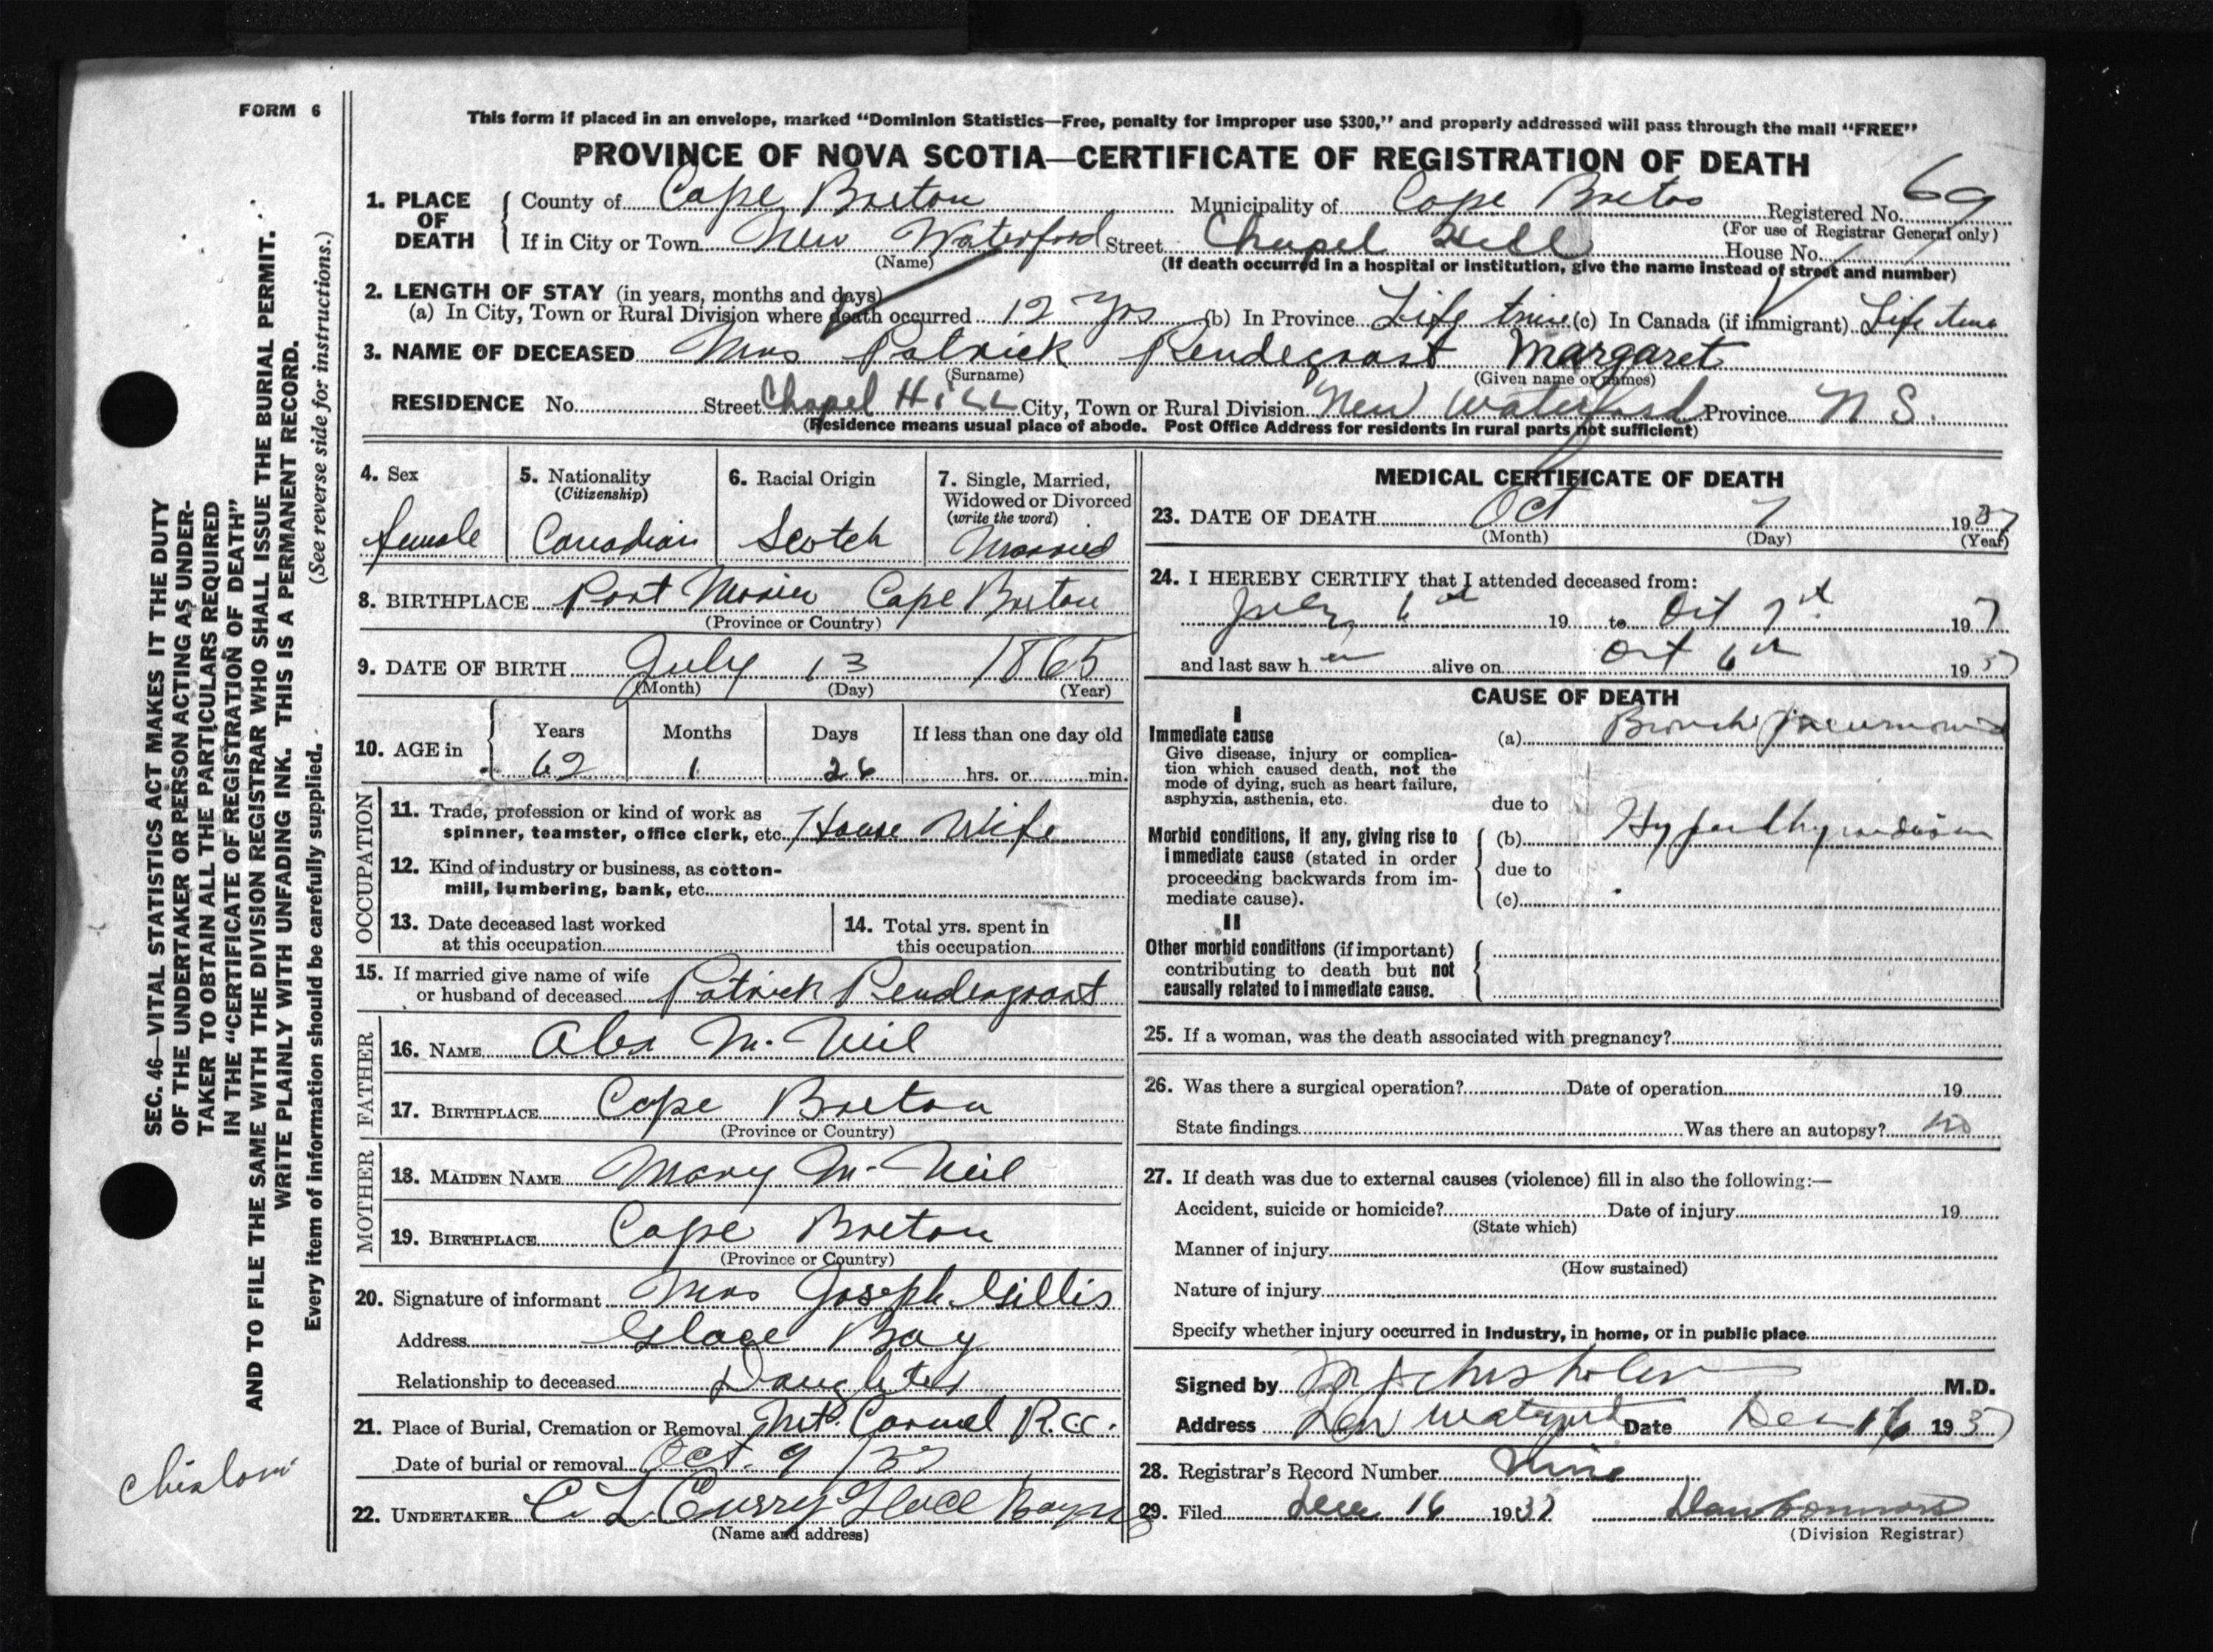 FORM 6
This form if placed in an envelope, marked “Dominion Statistics—Free, penalty for improper use $300,” and properly addressed will pass through the mail “FREE”
PROVINCE OF NOVA SCOTIA—CERTIFICATE OF REGISTRATION OF DEATH
SEC. 46—VITAL STATISTICS ACT MAKES IT THE DUTY
OF THE UNDERTAKER OR PERSON ACTING AS UNDER-
TAKER TO OBTAIN ALL THE PARTICULARS REQUIRED
IN THE “CERTIFICATE OF REGISTRATION OF DEATH”
AND TO FILE THE SAME WITH THE DIVISION REGISTRAR WHO SHALL ISSUE THE BURIAL PERMIT.
WRITE PLAINLY WITH UNFADING INK. THIS IS A PERMANENT RECORD.
Every item of information should be carefully supplied. (See reverse side for instructions.)
1. PLACE OF DEATH
County of Cape Breton Municipality of Cape Breton Registered No. 69
(For use of Registrar General only)
If in City or Town New Waterford Street Chapel Hill House No.
(Name)
(If death occurred in a hospital or institution, give the name instead of street and number)
2. LENGTH OF STAY (in years, months and days)
(a) In City, Town or Rural Division where death occurred 12 Yrs (b) In Province Life time (c) In Canada (if immigrant) Life time
3. NAME OF DECEASED Mrs Patrick Pendegrast Margaret
(Surname) (Given name or names)
RESIDENCE No. Street Chapel Hill City, Town or Rural Division New Waterford Province N S.
(Residence means usual place of abode. Post Office Address for residents in rural parts not sufficient)
4. Sex
female
5. Nationality
(Citizenship)
Canadian
6. Racial Origin
Scotch
7. Single, Married,
Widowed or Divorced
(write the word)
Married
8. BIRTHPLACE Port Morien Cape Breton
(Province or Country)
9. DATE OF BIRTH July 13 1865
(Month) (Day) (Year)
10. AGE in Years Months Days If less than one day old
62 1 26 hrs. or min.
OCCUPATION
11. Trade, profession or kind of work as
spinner, teamster, office clerk, etc. House Wife
12. Kind of industry or business, as cotton-
mill, lumbering, bank, etc.
13. Date deceased last worked
at this occupation
14. Total yrs. spent in
this occupation
15. If married give name of wife
or husband of deceased Patrick Pendergrast
FATHER
16. NAME Alex Mc Neil
17. BIRTHPLACE Cape Breton
(Province or Country)
MOTHER
18. MAIDEN NAME Mary Mc Neil
19. BIRTHPLACE Cape Breton
(Province or Country)
20. Signature of informant Mrs Joseph Gillis
Address Glace Bay
Relationship to deceased Daughter
21. Place of Burial, Cremation or Removal Mt. Carmel R.C.
Date of burial or removal Oct. 9 /37
22. UNDERTAKER C L Curry Glace Bay NS
(Name and address)
MEDICAL CERTIFICATE OF DEATH
23. DATE OF DEATH Oct 7 1937
(Month) (Day) (Year)
24. I HEREBY CERTIFY that I attended deceased from:
July 6th 19 to Oct 7th 1937
and last saw her alive on Oct 6th 1937
CAUSE OF DEATH
I
Immediate cause
Give disease, injury or complica-
tion which caused death, not the
mode of dying, such as heart failure,
asphyxia, asthenia, etc.
(a) Broncho Pneumonia
due to
Morbid conditions, if any, giving rise to
immediate cause (stated in order
proceeding backwards from im-
mediate cause).
(b) Hyperthyroidism
due to
(c)
II
Other morbid conditions (if important)
contributing to death but not
causally related to immediate cause.
25. If a woman, was the death associated with pregnancy?
26. Was there a surgical operation? Date of operation 19
State findings Was there an autopsy? No
27. If death was due to external causes (violence) fill in also the following:—
Accident, suicide or homicide? Date of injury 19
(State which)
Manner of injury
(How sustained)
Nature of injury
Specify whether injury occurred in Industry, in home, or in public place
Signed by Chisholm M.D.
Address New Waterford Date Dec 16 1937
28. Registrar's Record Number Nine
29. Filed Dec 16 1937 Dan Connors
(Division Registrar)